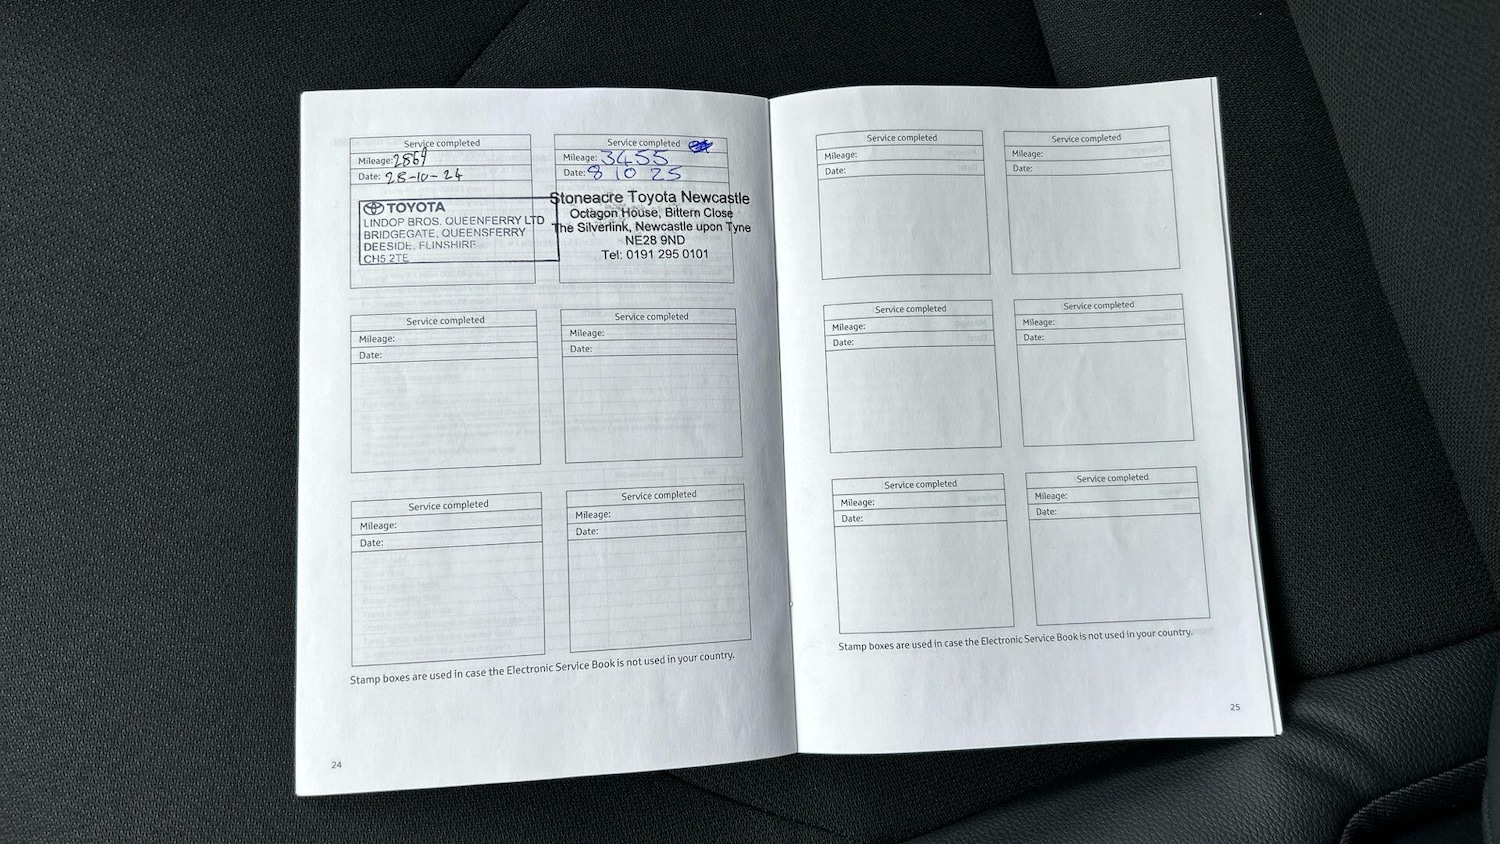 Service completed
Mileage: 2869
Date: 28-10-24
TOYOTA
LINDOP BROS. QUEENFERRY LTD
BRIDGEGATE, QUEENSFERRY
DEESIDE, FLINSHIRE
CH5 2TE
Service completed
Mileage: 3455
Date: 8 10 25
Stoneacre Toyota Newcastle
Octagon House, Bittern Close
The Silverlink, Newcastle upon Tyne
NE28 9ND
Tel: 0191 295 0101
Service completed
Mileage:
Date:
Service completed
Mileage:
Date:
Service completed
Mileage:
Date:
Service completed
Mileage:
Date:
Stamp boxes are used in case the Electronic Service Book is not used in your country.
24
Service completed
Mileage:
Date:
Service completed
Mileage:
Date:
Service completed
Mileage:
Date:
Service completed
Mileage:
Date:
Service completed
Mileage:
Date:
Service completed
Mileage:
Date:
Stamp boxes are used in case the Electronic Service Book is not used in your country.
25